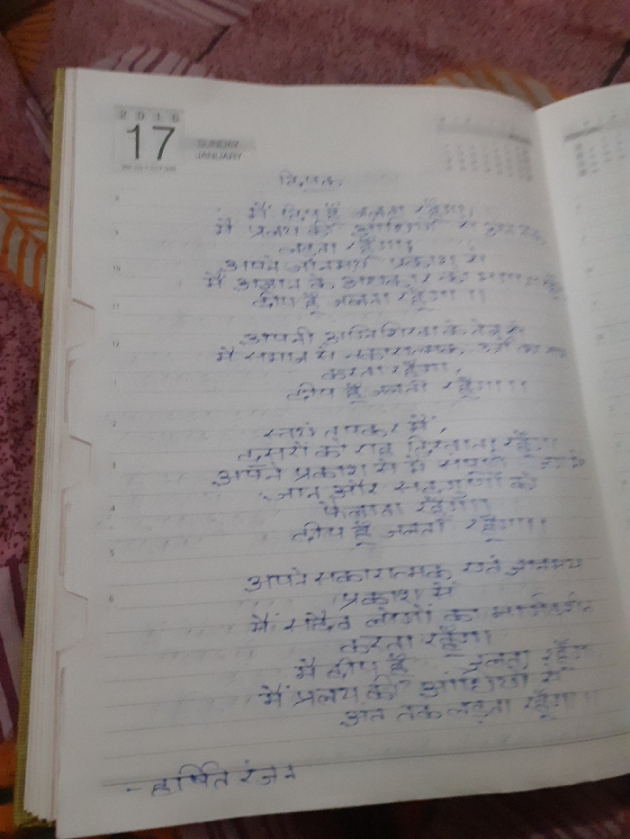 2016
17
SUNDAY
JANUARY
दीपक
मैं दीप हूँ जलता रहूँगा।
मैं प्रलय की आंधियों से
लड़ता रहूँगा।
अपने ज्ञानमयी प्रकाश से
मैं अज्ञान के अंधकार को
दीप हूँ जलता रहूँगा ।।
अपनी अग्निशिखा के तेज से
मैं समाज में सकारात्मक
करता रहूँगा,
दीप हूँ जलता रहूँगा।।
स्वयं तपकर मैं,
दूसरों को राह दिखाता रहूँगा।
अपने प्रकाश से मैं सम्पूर्ण
ज्ञान और सद्गुणों को
फैलाता रहूँगा।
दीप हूँ जलता रहूँगा।।
अपने सकारात्मक एवं ज्ञानमय
प्रकाश से
मैं सदैव लोगों का मार्गदर्शन
करता रहूँगा।
मैं दीप हूँ जलता रहूँगा
मैं प्रलय की आंधियों से
अंत तक लड़ता रहूँगा।।
- हर्षित रंजन